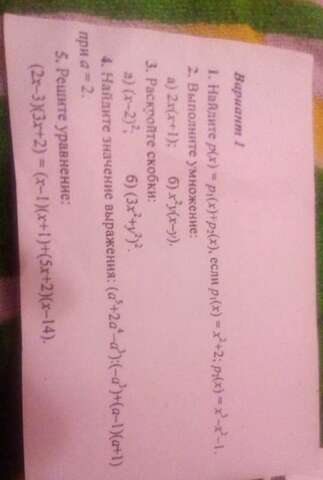 Вариант 1
1. Найдите p(x) = p₁(x)+p₂(x), если p₁(x) = x²+2; p₂(x) = x³–x²–1.
2. Выполните умножение:
а) 2x(x+1); б) x²y(x–y).
3. Раскройте скобки:
а) (x–2)²; б) (3x²+y²)².
4. Найдите значение выражения: (a⁵+2a⁴–a³):(–a³)+(a–1)(a+1)
при a = 2.
5. Решите уравнение:
(2x–3)(3x+2) = (x–1)(x+1)+(5x+2)(x–14).